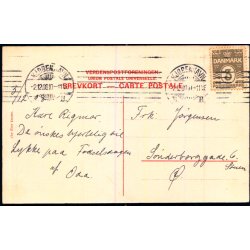 VERDENSPOSTFORENINGEN.
UNION POSTALE UNIVERSELLE.
BREVKORT. - CARTE POSTALE.
DANMARK
3
Kære Rigmor.
Du ønskes hjerteligst
Lykke paa Fødselsdagen
af Oda
Frk. Jørgensen
Sønderborggade 6.
Ø.